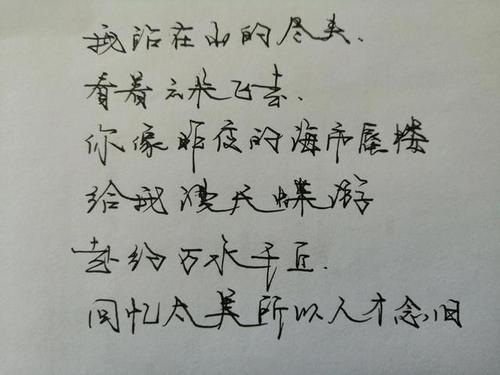 我站在山的尽头.
看着云来飞去.
你像昨夜的海市蜃楼
给我漫天蝶游
赴约万水千丘.
回忆太美所以人才念旧